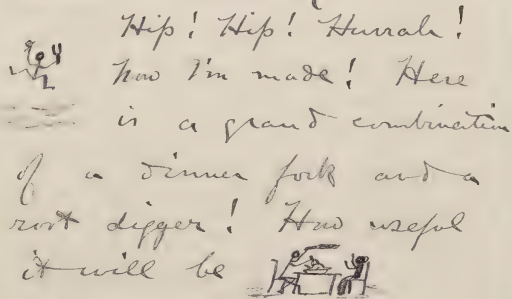 Hip! Hip! Hurrah!
how I'm made! Here
is a grand combination
of a dinner fork and a
root digger! How useful
it will be